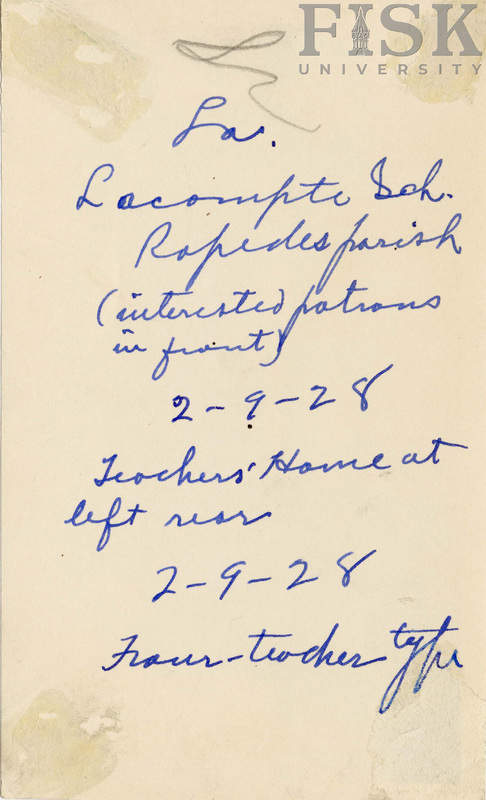 FISK
UNIVERSITY
La.
Lacompte Sch.
Rapedes parish
(interested patrons
in front)
2-9-28
Teachers' Home at
left rear
2-9-28
Four-teacher type